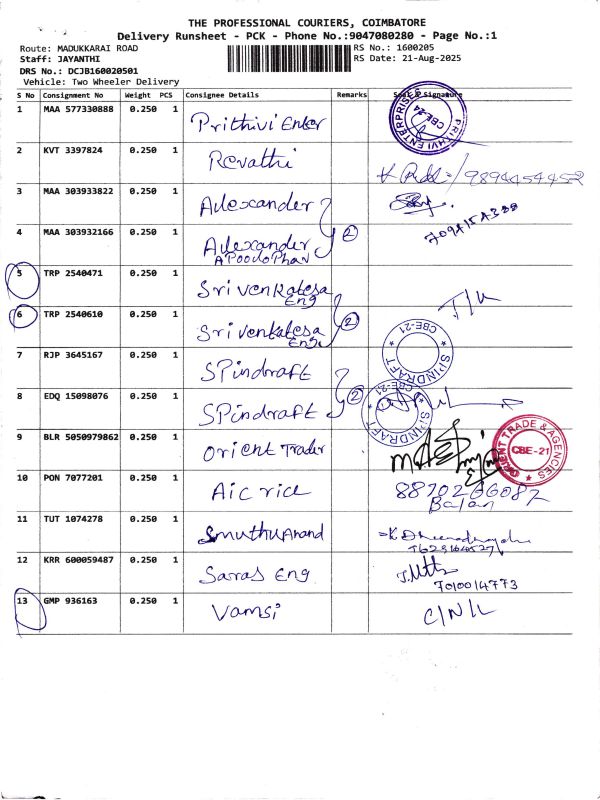 THE PROFESSIONAL COURIERS, COIMBATORE
Delivery Runsheet - PCK - Phone No.:9047080280 - Page No.:1
Route: MADUKKARAI ROAD
RS No.: 1600205
Staff: JAYANTHI
RS Date: 21-Aug-2025
DRS No.: DCJB160020501
Vehicle: Two Wheeler Delivery
S No Consignment No Weight PCS Consignee Details Remarks Seal & Signature
1 MAA 577330888 0.250 1 Prithivi Enter
PRITHVI ENTERPRISES CBE-24
2 KVT 3397824 0.250 1 Revathi
9894454452
3 MAA 303933822 0.250 1 Adexander
4 MAA 303932166 0.250 1 Adexander (2)
5 TRP 2540471 0.250 1 Srivenkatesa
Eng
6 TRP 2540610 0.250 1 Srivenkatesa (2)
7 RJP 3645167 0.250 1 SPindraft
SPINDRAFT CBE-21
8 EDQ 15098076 0.250 1 SPindraft (2)
SPINDRAFT CBE-21
9 BLR 5050979862 0.250 1 Orient Trader
ORIENT TRADE & AGENCIES CBE-21
10 PON 7077201 0.250 1 Aicrice 8870266087
Balan
11 TUT 1074278 0.250 1 SmuthuAnand
12 KRR 600059487 0.250 1 Saras Eng
7010014773
13 GMP 936163 0.250 1 Vamsi C/N/L